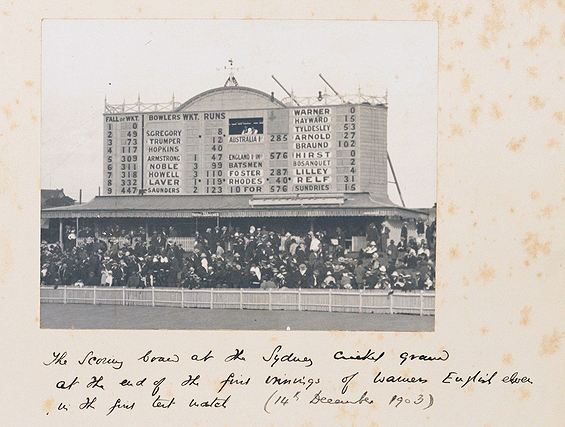 FALL OF WKT. BOWLERS WKT. RUNS WARNER 0
1 0 HAYWARD 15
2 49 S GREGORY 8 TYLDESLEY 53
3 73 TRUMPER 12 AUSTRALIA 1st 285 ARNOLD 27
4 117 HOPKINS 40 BRAUND 102
5 309 ARMSTRONG 1 47 ENGLAND 1st INs 576 HIRST 0
6 311 NOBLE 3 99 BATSMEN BOSANQUET
7 318 HOWELL 3 110 FOSTER 287 LILLEY 4
8 332 LAVER 1 119 RHODES 40 RELF 31
9 447 SAUNDERS 2 123 10 FOR 576 SUNDRIES 15
The Scoring board at the Sydney cricket ground
at the end of the first innings of Warners English eleven
in the first test match (14th December 1903)